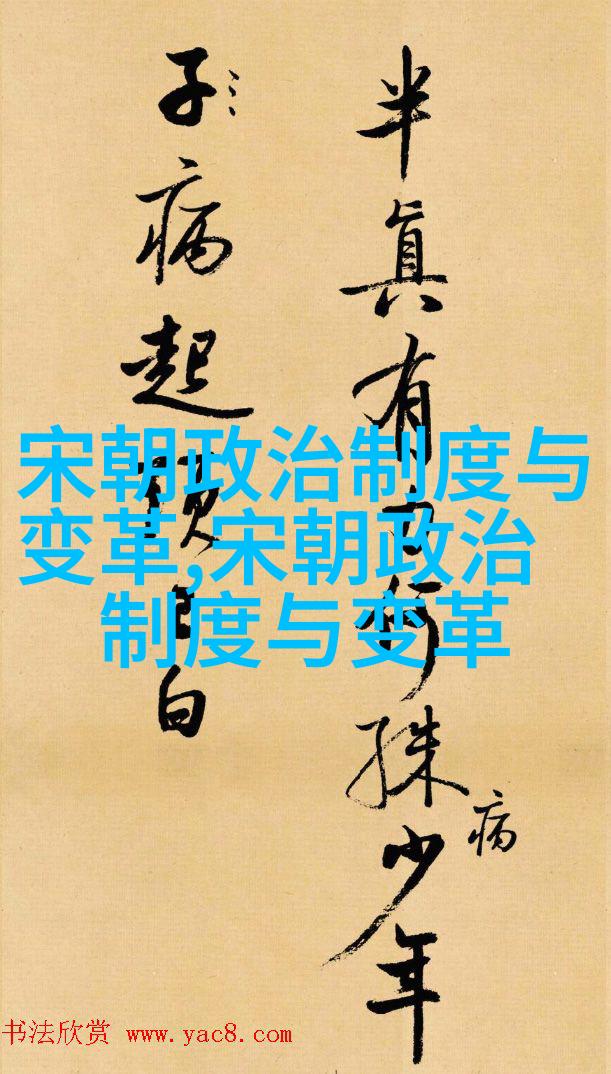 半眞有力何殊少年
病
子病起已白
宋朝政治制度与
变革,宋朝政治
制度与变革
书法欣赏 www.yac8.com